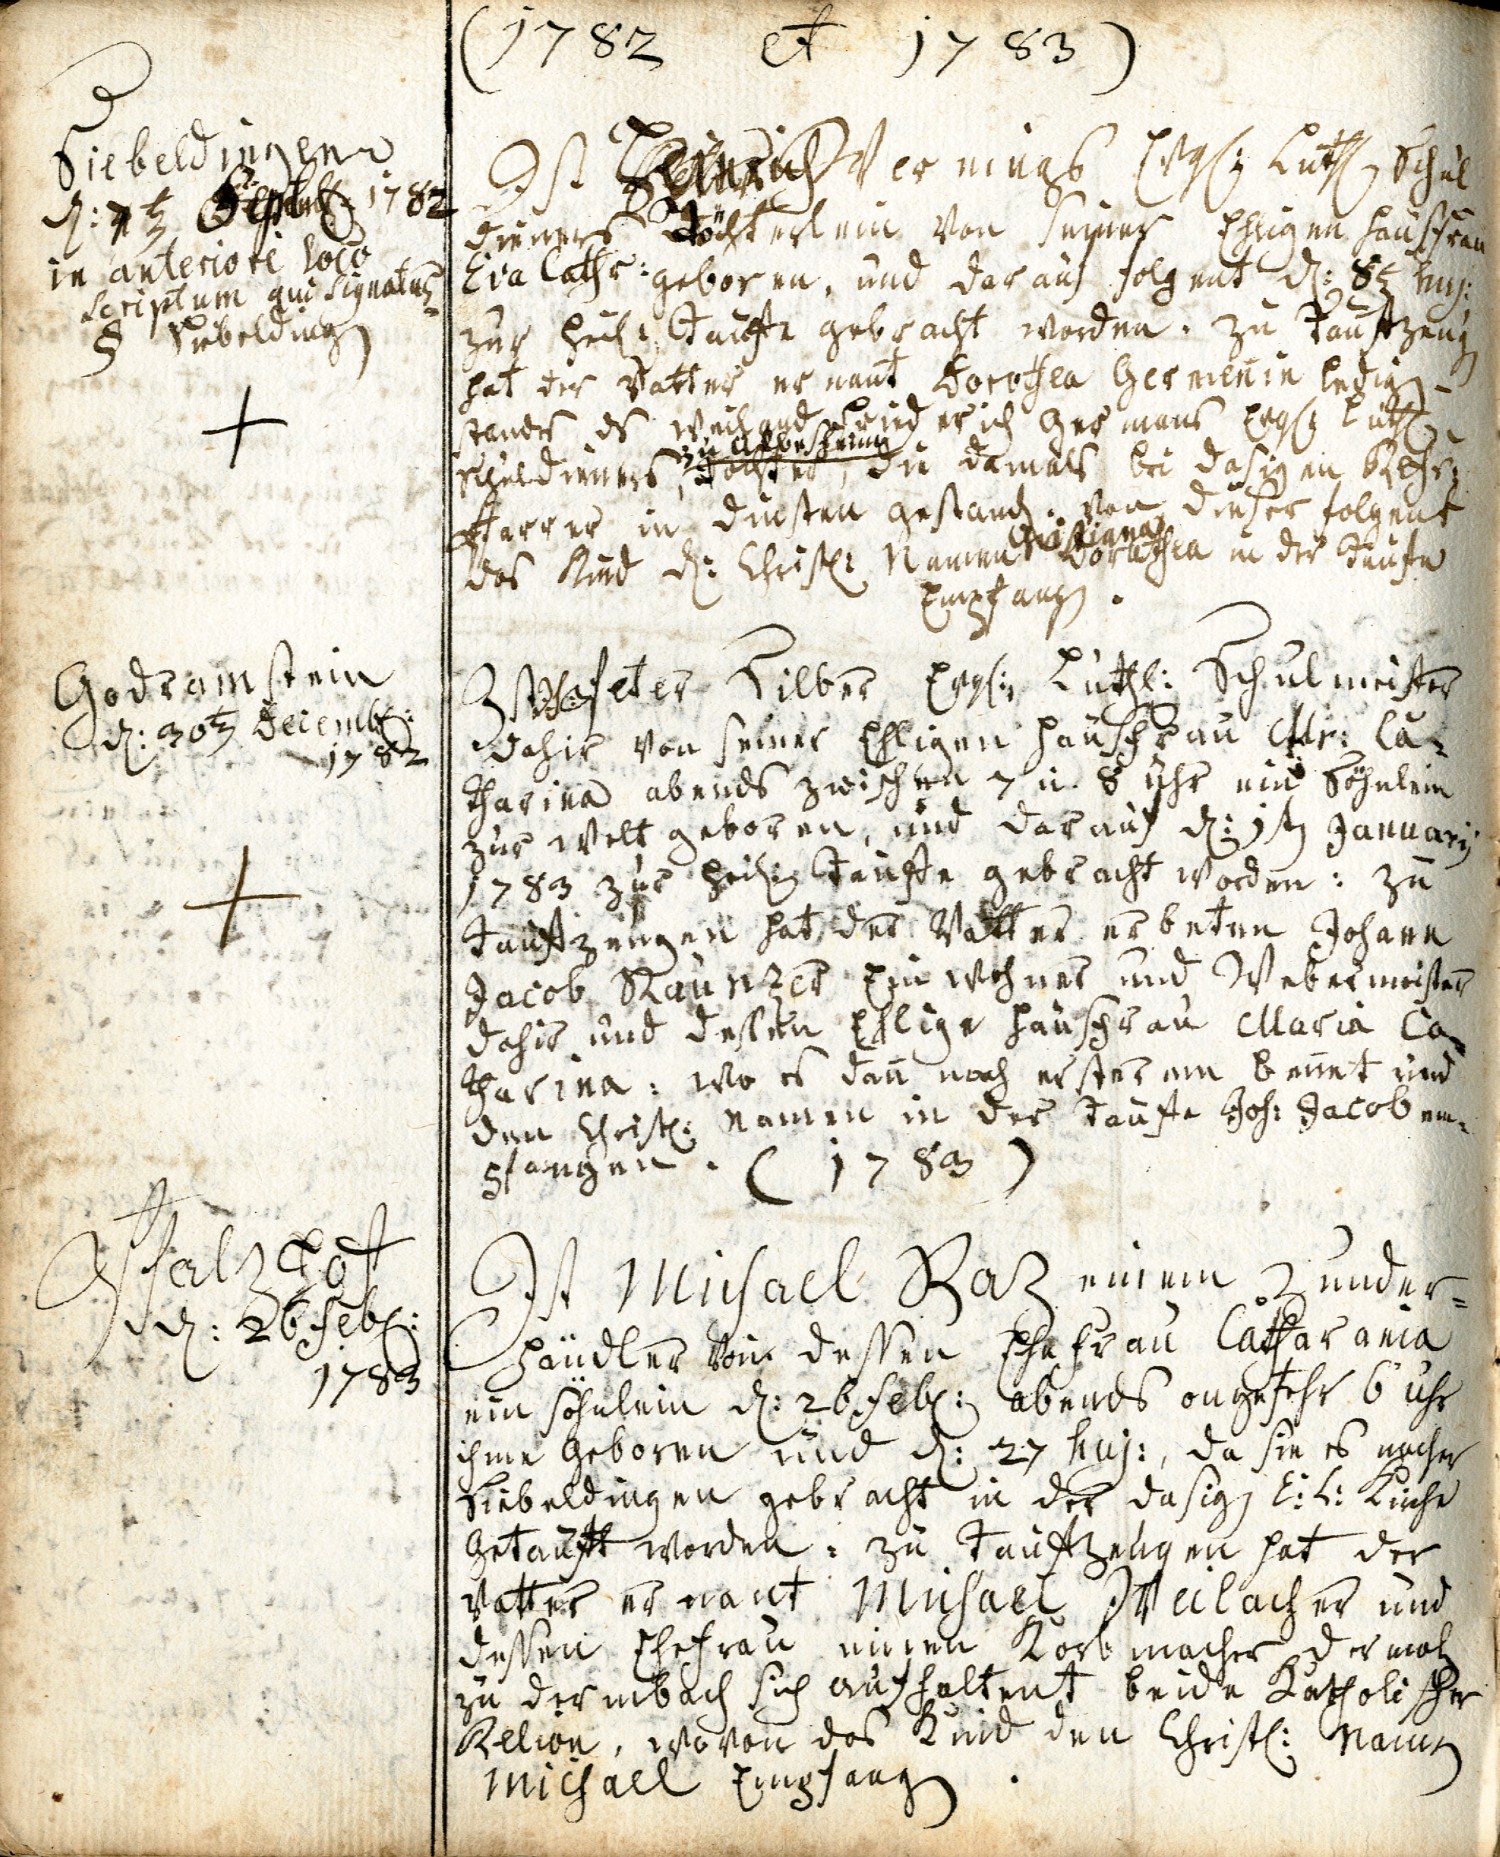 (1782 et 1783)
Siebeldingen
d: 7t Septbr 1782
in anteriori loco
scriptum qui signatur
§ Siebelding
Ist Henrich Wernings Evgl: Luth. Schul
dieners Töchterlein von seiner Ehligen Haußfrau
Eva Cathr: geboren, und darauf folgent d: 8t huj:
zur heil: Tauffe gebracht worden. zu Tauffzeug
hat der Vatter ernent Dorothea Germenin ledig
stands des weiland Friderich Germans Evgl Luth
zu Albersheim
Schuldieners, Tochter, die damals bei dasigen
Pfarrer in dinsten gestand. von dieser folgent
Christiana
das Kind d: Christl: Namen Dorothea in der Taufe
Empfang.
Godramstein
d: 30t Decembr:
1782
Ist Peter Hilber Evgl: Luthl: Schulmeister
dahir von seiner Ehligen Haußfrau Mr: Ca-
tharina abends zwischen 7 u. 8 Uhr ein Söhnlein
zur Welt geboren, und darauf d: 1t January
1783 zur heilig Tauffe gebracht worden: zu
Tauffzeugen hat der Vatter erbeten Johann
Jacob Kauntzer Einwohner und Webermeister
dahir und dessen Ehlige Haußfrau Maria Ca-
tharina: wo es dan nach ersterem benet und
den Christl: Namen in der Tauffe Joh: Jacob em-
pfangen. (1783)
Pfalzhoff
d: 26 Febr:
1783
Ist Michael Raz einem Zunder-
händler von dessen Ehefrau Catharania
ein söhnlein d: 26 Febr: abends ongefehr 6 Uhr
ihme Geboren und d: 27 huj:, da sie es nacher
Siebeldingen gebracht in der dasig E: L: Kirche
Getaufft worden. zu Tauffzeugen hat der
Vatter ernant Michael Weilacher und
dessen Ehefrau einen Korbmacher dermal
zu dermbach sich aufhaltent beide Katholischer
Relion, wovon das Kind den Christl: Namen
Michael Empfang.